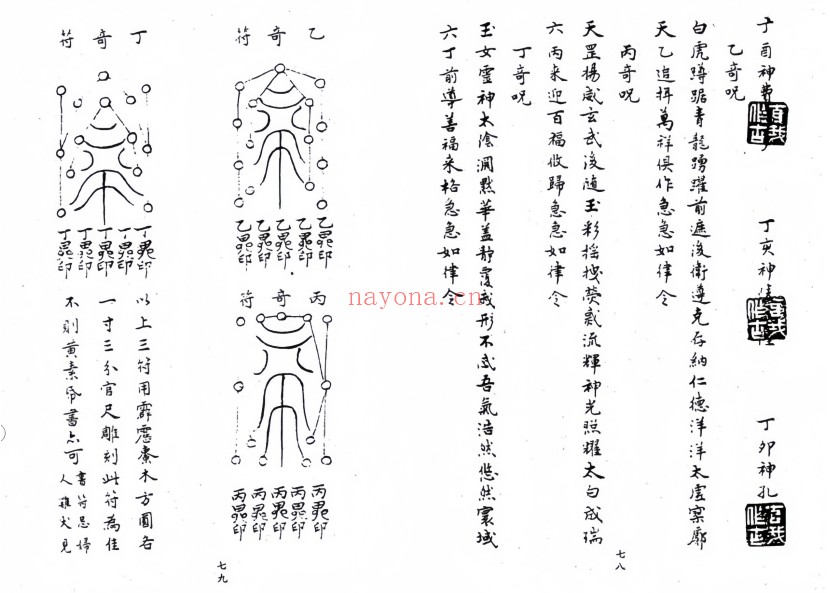 丁酉神
丁亥神
丁卯神孔
乙奇咒
白虎蹲踞青龍踴躍前遮後衛導充存納仁德洋洋太虛寥廓
天乙追捕萬祥俱作急急如律令
丙奇咒
天罡揚威玄武後隨玉彩摇拽熒惑流輝神光照耀太白成瑞
六丙來迎百福攸歸急急如律令
丁奇咒
玉女靈神太陰洞默華蓋静覆成形不忒吾氣浩然悠然寰域
六丁前導善福來格急急如律令
七八
乙奇符
乙 印 乙 印 乙 印 乙 印 乙 印
丙奇符
丙 印 丙 印 丙 印 丙 印 丙 印
丁奇符
丁 印 丁 印 丁 印 丁 印 丁 印
以上三符用霹靂棗木方圓各
一寸三分官尺雕刻此符為佳
不則黄素帋書亦可書符忌婦
人雞犬見
七九
nayona.cn